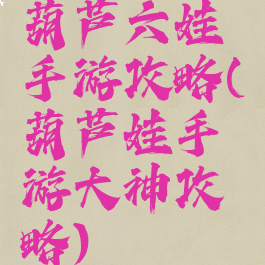 葫芦六娃
手游攻略(
葫芦娃手
游大神攻
略)